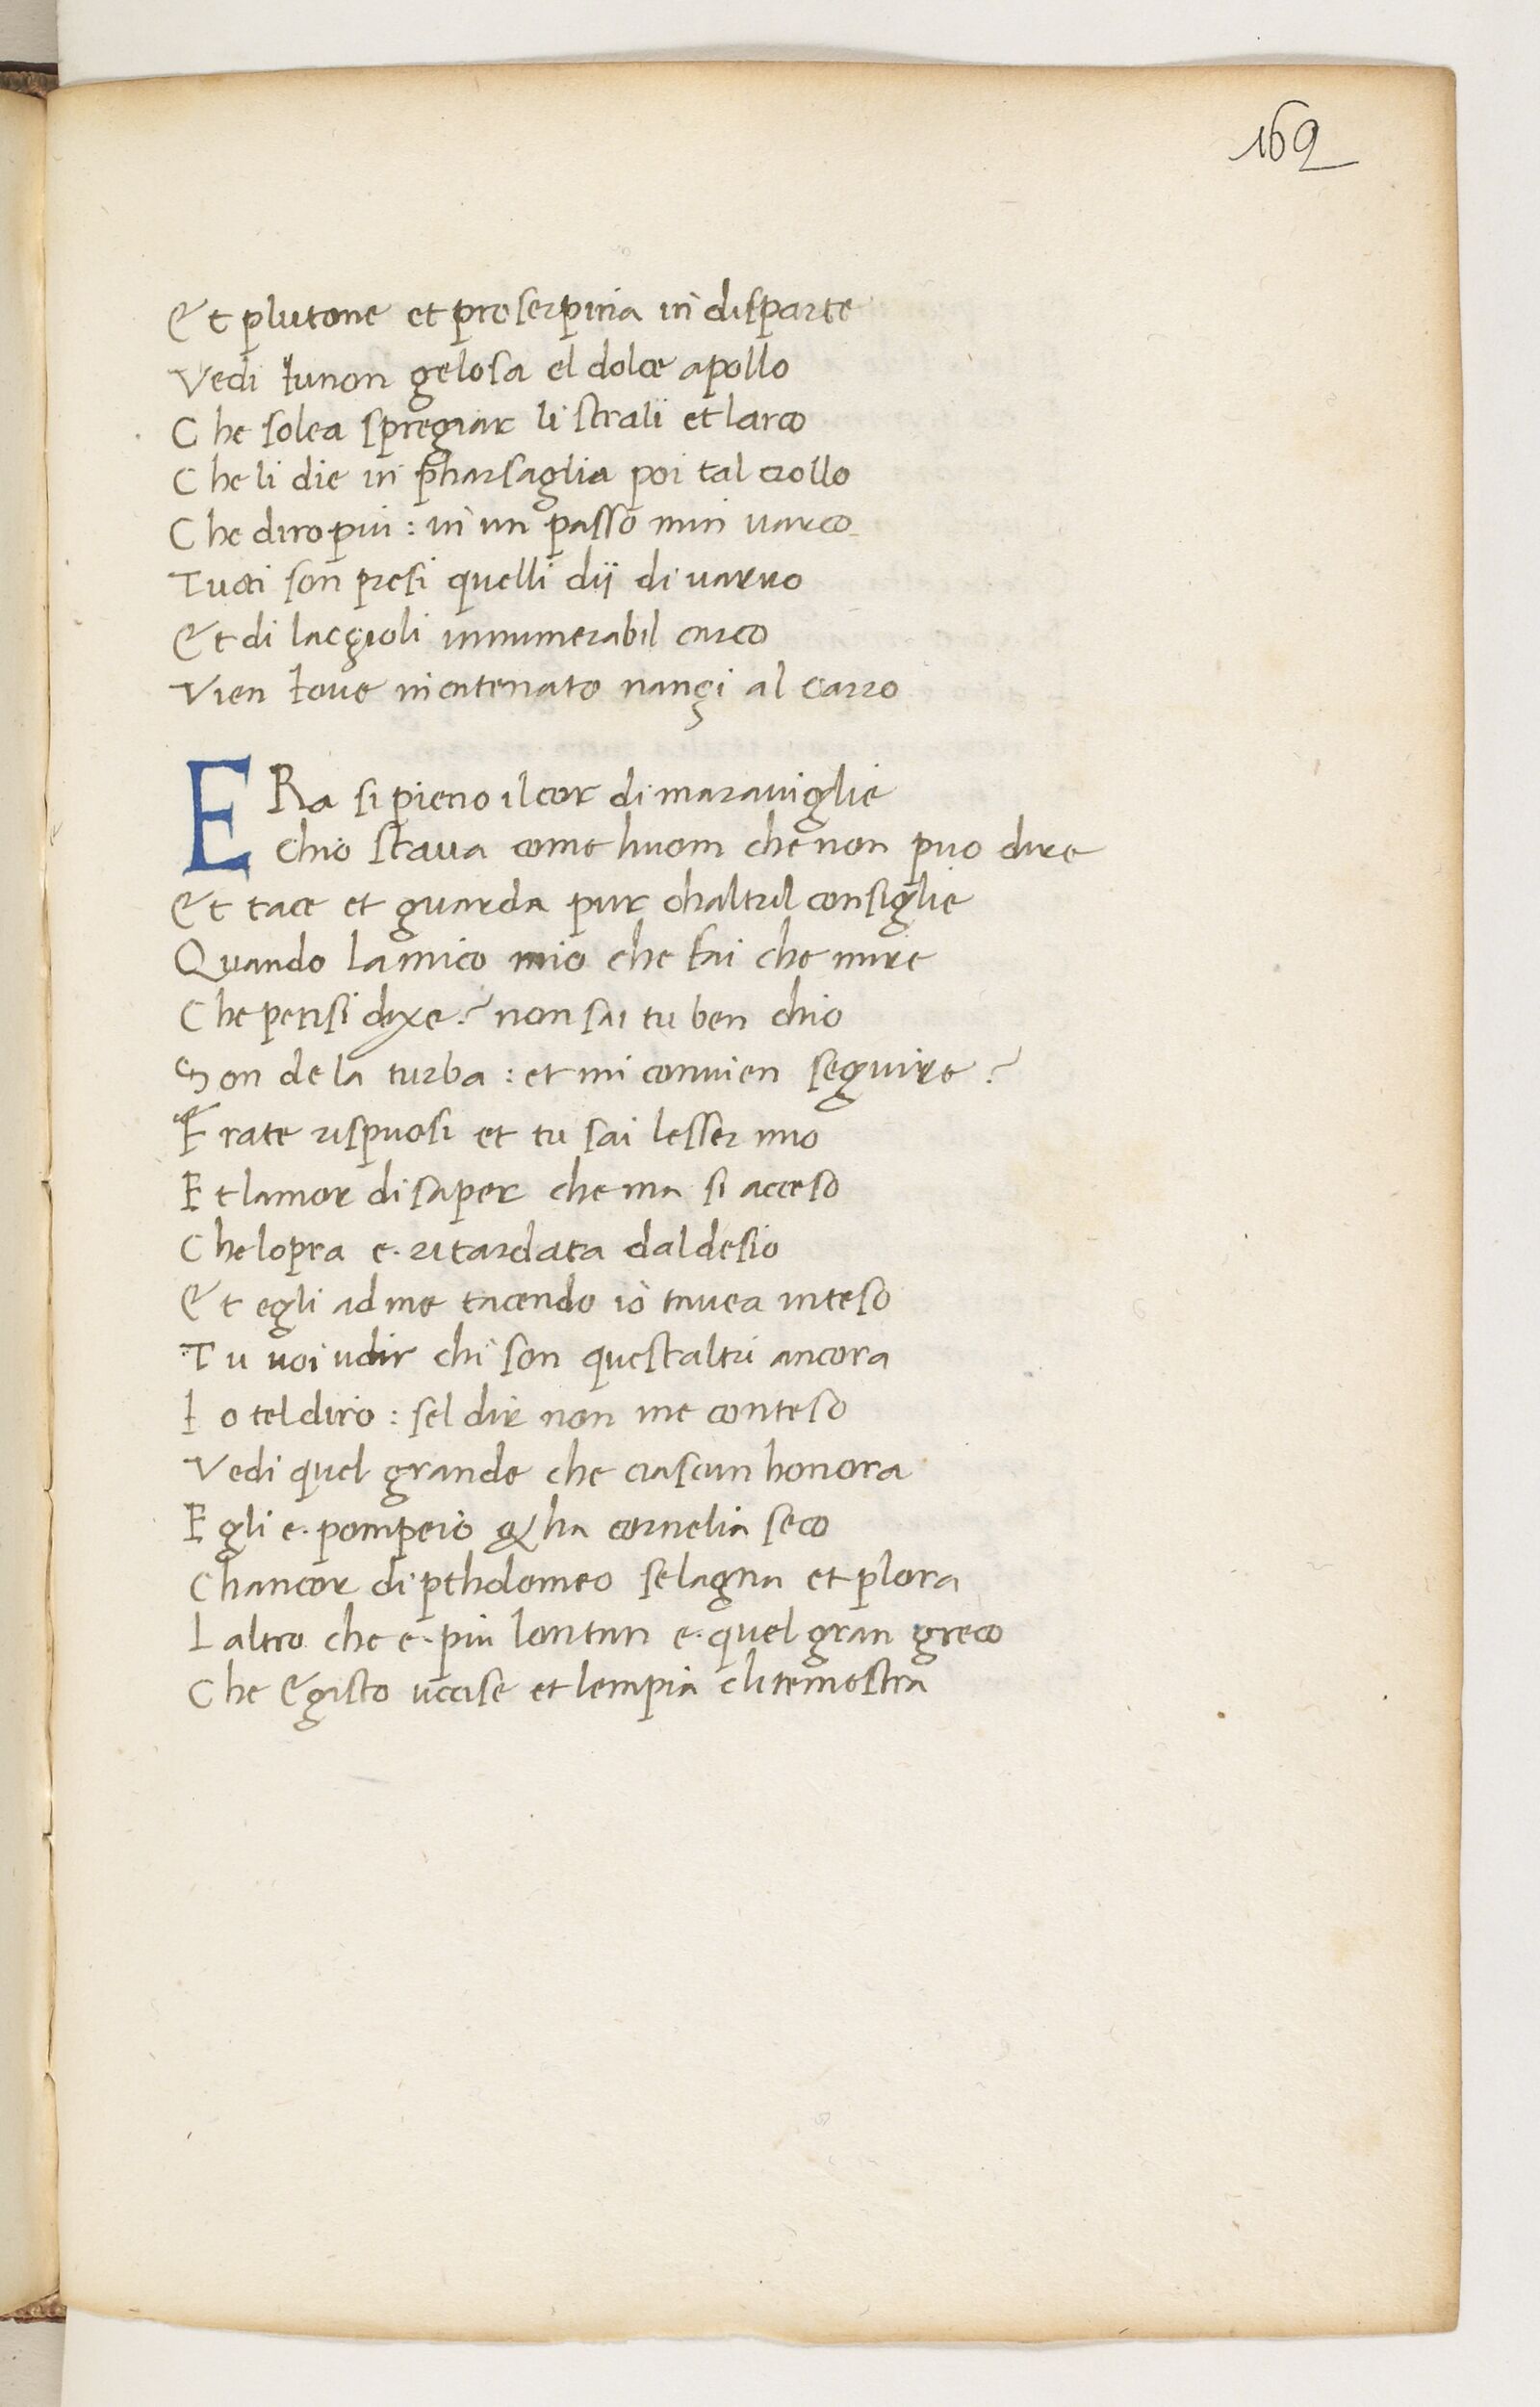 169
Et plutone et proserpina in disparte
Vedi Iunon gelosa el dolce apollo
Che solea spregiar li strali et larco
Che li die in pharsaglia poi tal crollo
Che diro piu : in un passo min varco
Tucti son presi quelli dii di varro
Et di lacgioli innumerabil carco
Vien Ioue incatenato nangi al carro
ERa si pieno il cor di marauiglie
Chio staua come huom che non puo dire
Et tace et guarda pur chaltril consiglie
Quando lamico mio che fai che mire
Che pensi dixe? non sai tu ben chio
Son de la turba : et mi conuien seguire?
Frate rispuosi et tu sai lesser mio
Et lamor di saper che ma si acceso
Che lopra e· ritardata dal desio
Et egli ad me tacendo io tauea inteso
Tu uoi udir chi son questaltri ancora
Io tel diro : sel dir non me conteso
Vedi quel grande che ciascun honora
Egli e· pompeio & ha cornelia seco
Chancor di ptholomeo se lagna et plora
Laltro che e· piu lontan e· quel gran greco
Che Egisto uccise et lempia clitemostra